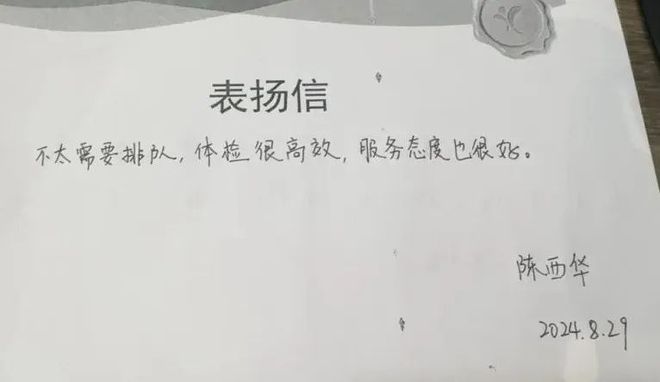 表扬信
不太需要排队，体检很高效，服务态度也很好。
陈西华
2024.8.29